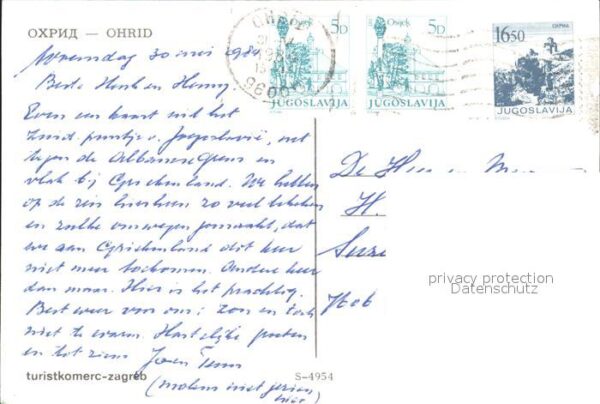 ОХРИД — OHRID
Woensdag 30 mei 1984
Beste Henk en Henny,
Even een kaart uit het
Zuid. puntje v. Jugoslavië, net
tegen de Albanese grens en
vlak bij Griekenland. We hebben
op de reis hierheen zo veel bekeken
en zulke omwegen gemaakt, dat
we aan Griekenland dit keer
niet meer toekomen. Andere keer
dan maar. Hier is het prachtig.
Best weer van ons: zon en toch
niet te warm. Hartelijke groeten
en tot ziens
(molens niet gezien
hier)
turistkomerc-zagreb
S-4954
OHRID
96000
Osijek 5D
JUGOSLAVIJA
Osijek 5D
JUGOSLAVIJA
16,50 ОХРИД
JUGOSLAVIJA
De
H.
privacy protection
Datenschutz